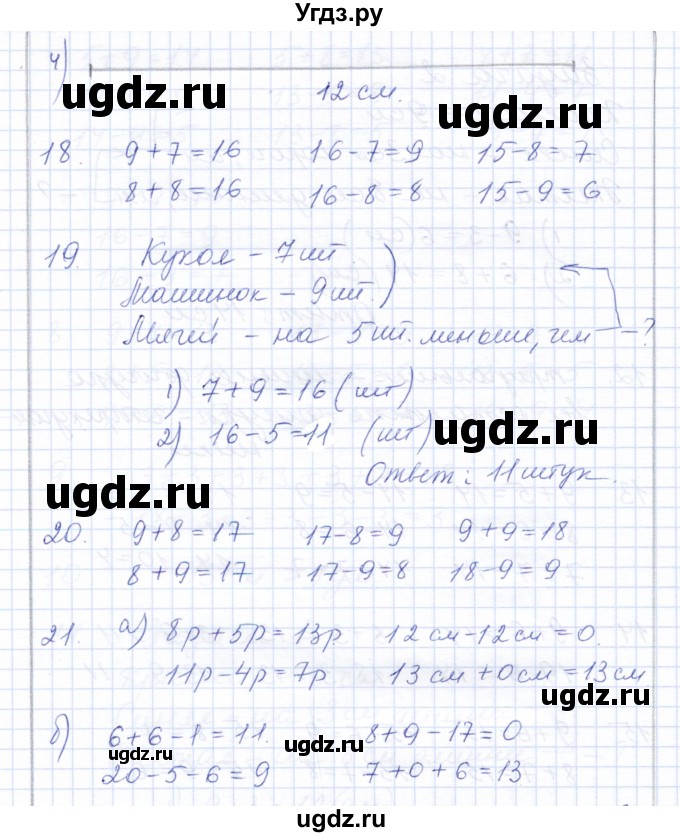 УгдZ.ру
ч)
12 см.
ugdz.ru
ugdz.ru
18. 9+7=16 16-7=9 15-8=7
8+8=16 16-8=8 15-9=6
19. Кукол - 7 шт
Машинок - 9 шт.)
Мячей - на 5 шт. меньше, чем —?
1) 7+9=16 (шт)
2) 16-5=11 (шт)
ugdz.ru
Ответ: 11 штук.
ugdz.ru
20. 9+8=17 17-8=9 9+9=18
8+9=17 17-9=8 18-9=9
21. а) 8р+5р=13р 12 см-12 см=0.
11р-4р=7р 13 см+0 см=13 см
ugdz.ru
б) 6+6-1=11. 8+9-17=0
ugdz.ru
ugdz.ru
20-5-6=9 7+0+6=13
ugdz.ru